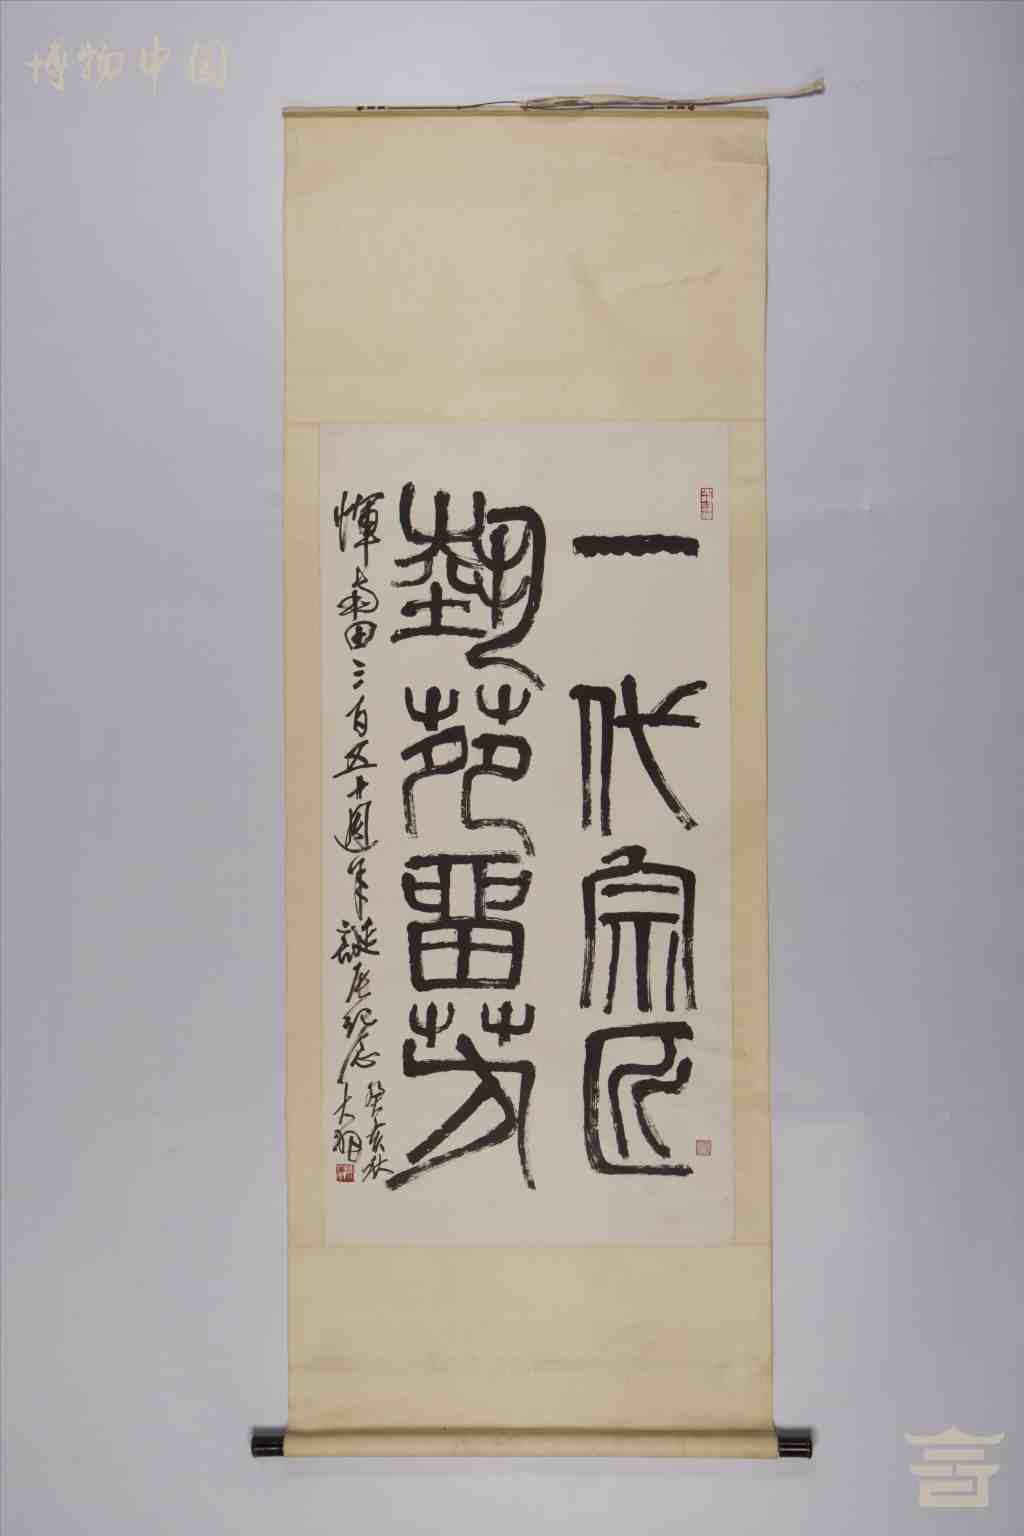 博物中国
一代宗匠
艺苑留芳
恽南田三百五十周年诞辰纪念
癸亥秋
大羽